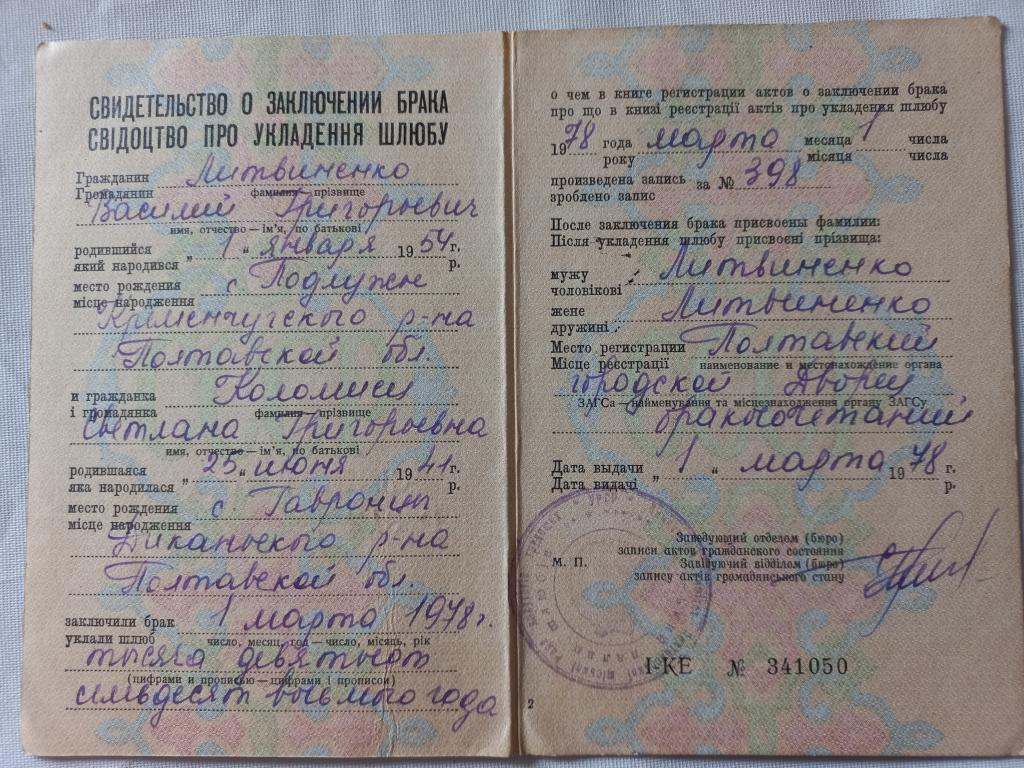 СВИДЕТЕЛЬСТВО О ЗАКЛЮЧЕНИИ БРАКА
СВІДОЦТВО ПРО УКЛАДЕННЯ ШЛЮБУ
Гражданин Литвиненко
Громадянин фамилия — прізвище
Василий Григорьевич
имя, отчество — ім'я, по батькові
родившийся „ 1 “ января 1954 г.
який народився р.
место рождения с. Подлужн
місце народження
Кременчугского р-на
Полтавской обл.
и гражданка Коломиец
і громадянка фамилия — прізвище
Светлана Григорьевна
имя, отчество — ім'я, по батькові
родившаяся „ 25 “ июня 1941 г.
яка народилася р.
место рождения с. Гавронцы
місце народження
Диканьского р-на
Полтавской обл.
заключили брак 1 марта 1978 г.
уклали шлюб число, месяц, год — число, місяць, рік
тысяча девятьсот
(цифрами и прописью — цифрами і прописом)
семьдесят восьмого года
о чем в книге регистрации актов о заключении брака
про що в книзі реєстрації актів про укладення шлюбу
1978 года марта месяца 1 числа
року місяця числа
произведена запись за № 398
зроблено запис
После заключения брака присвоены фамилии:
Після укладення шлюбу присвоєні прізвища:
мужу Литвиненко
чоловікові
жене Литвиненко
дружині
Место регистрации Полтавский
Місце реєстрації наименование и местонахождение органа
городской Дворец
ЗАГСа — найменування та місцезнаходження органу ЗАГСу
бракосочетаний
Дата выдачи „ 1 “ марта 1978 г.
Дата видачі р.
Заведующий отделом (бюро)
записи актов гражданского состояния
М. П. Завідуючий відділом (бюро)
запису актів громадянського стану
I-КЕ № 341050
2